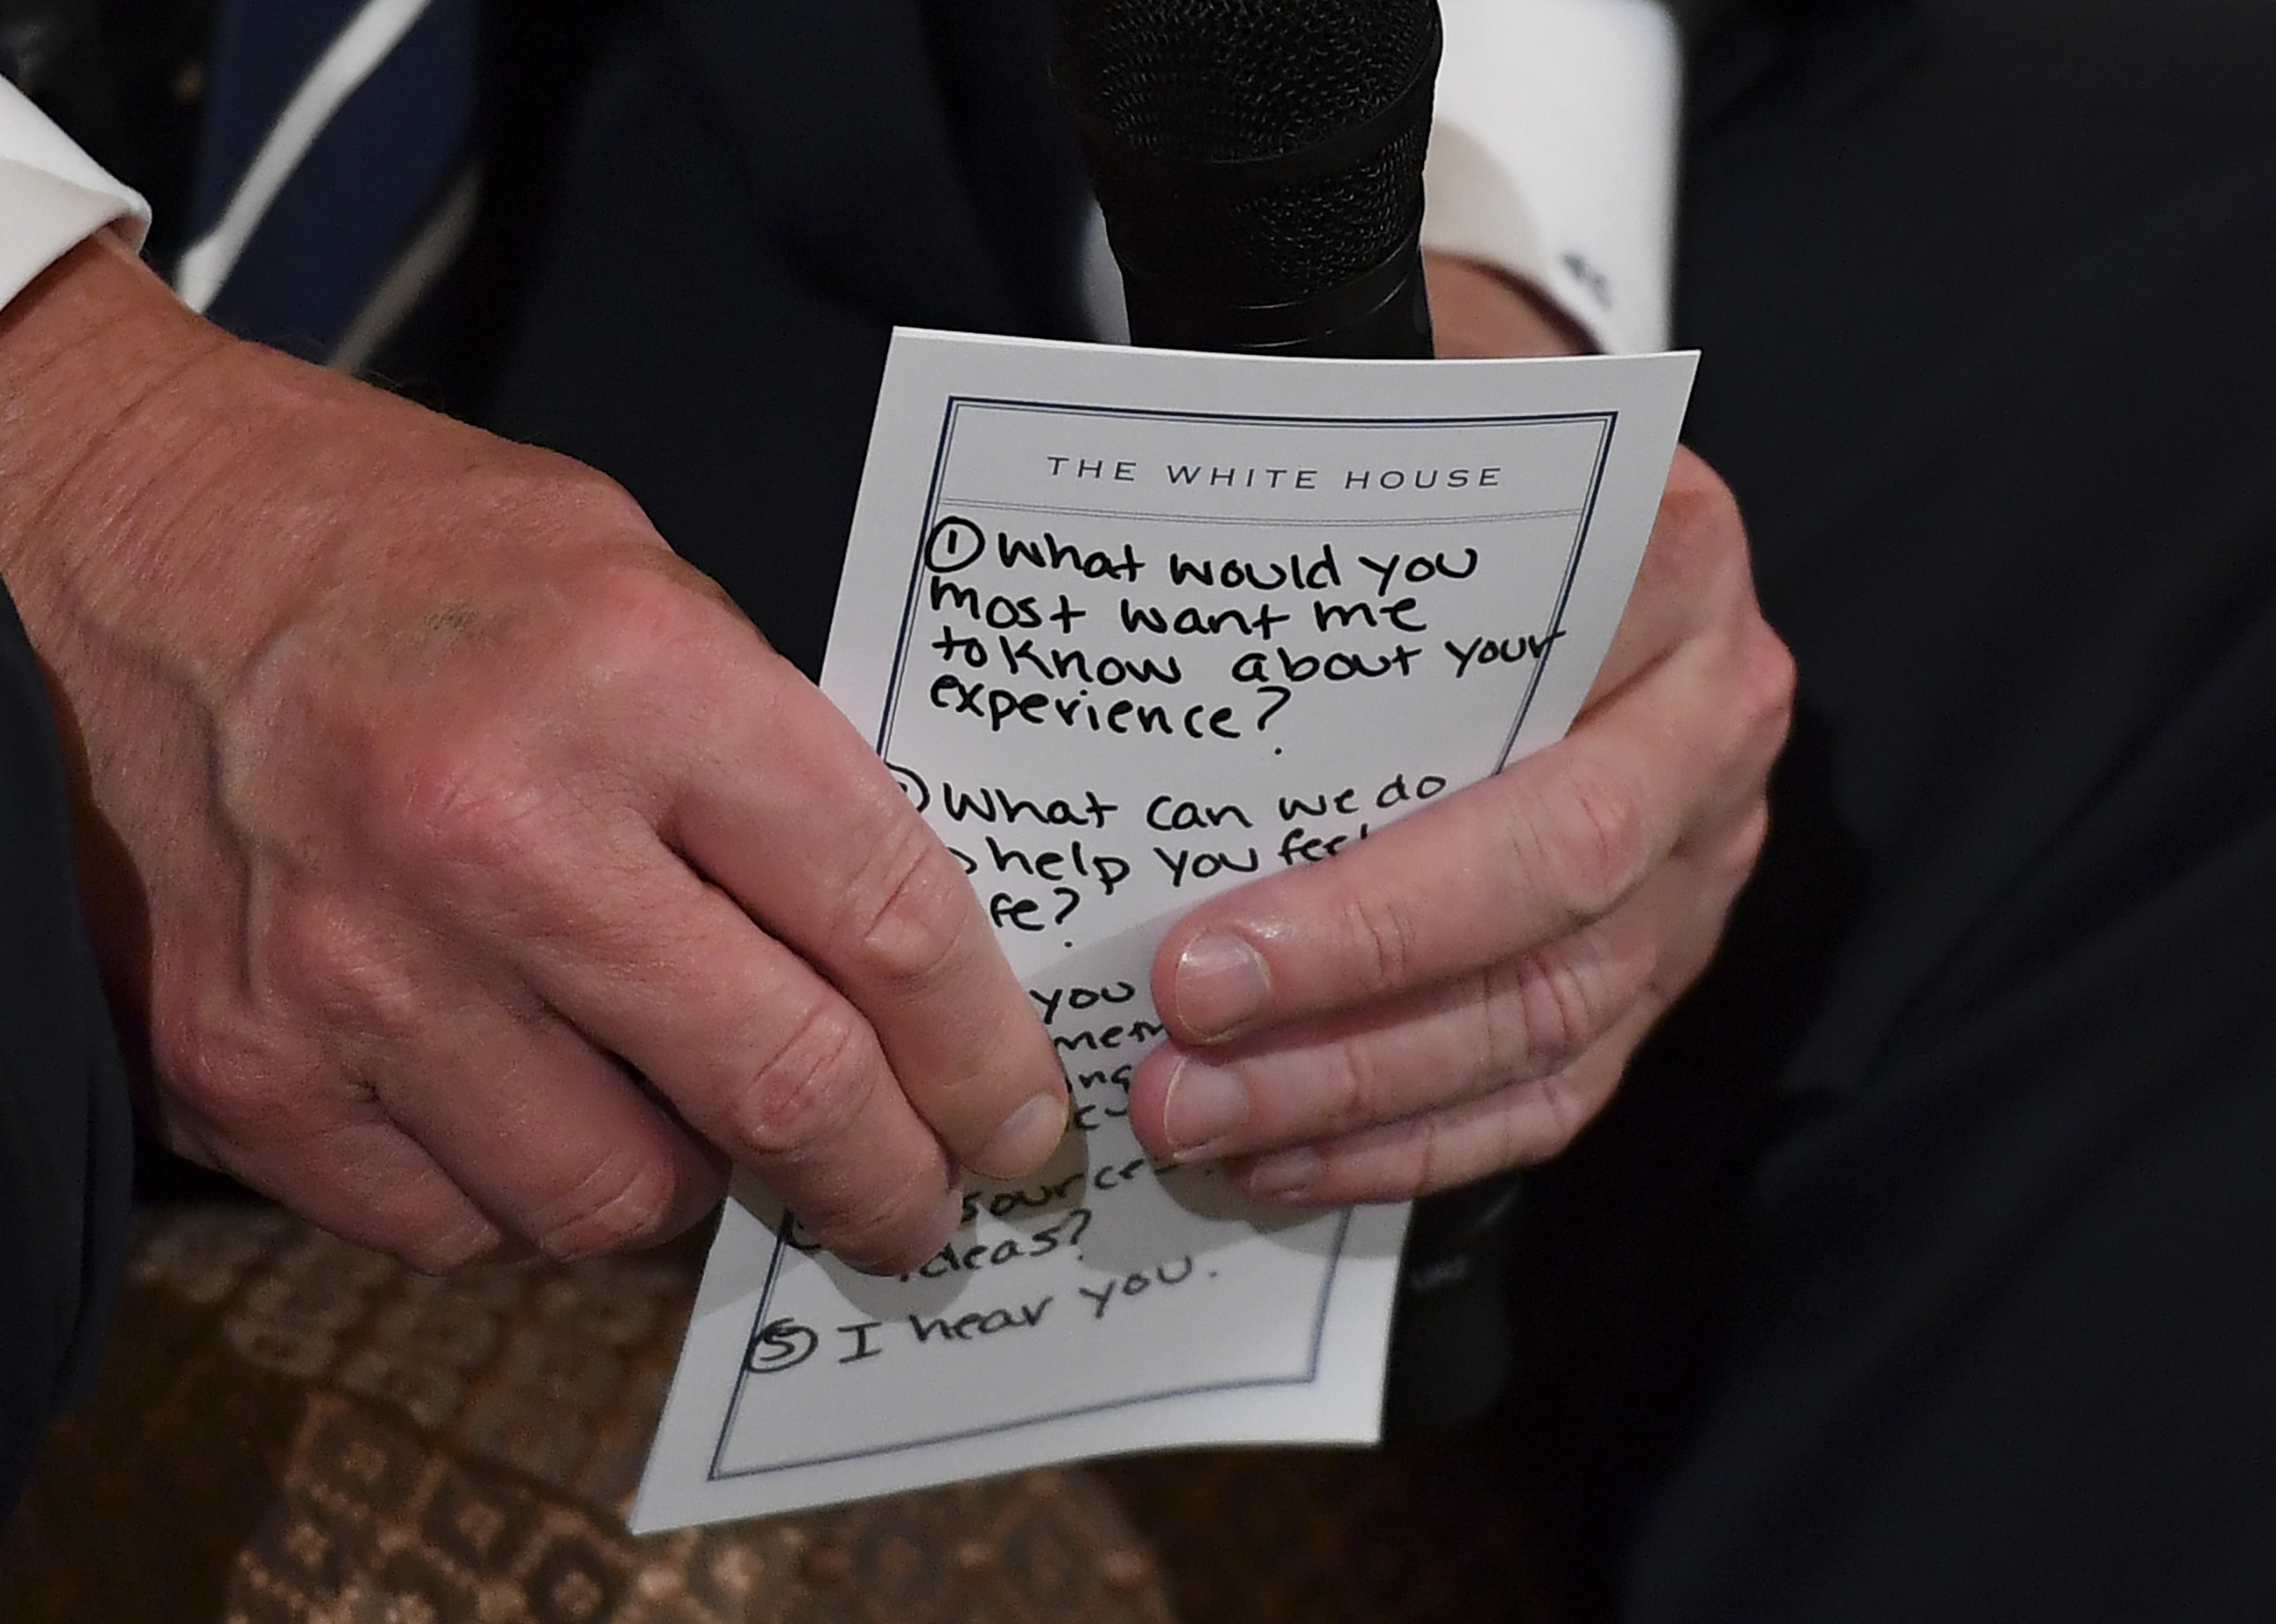 THE WHITE HOUSE
① What would you
most want me
to know about your
experience?
What can we do
help you
you
ideas?
⑤ I hear you.